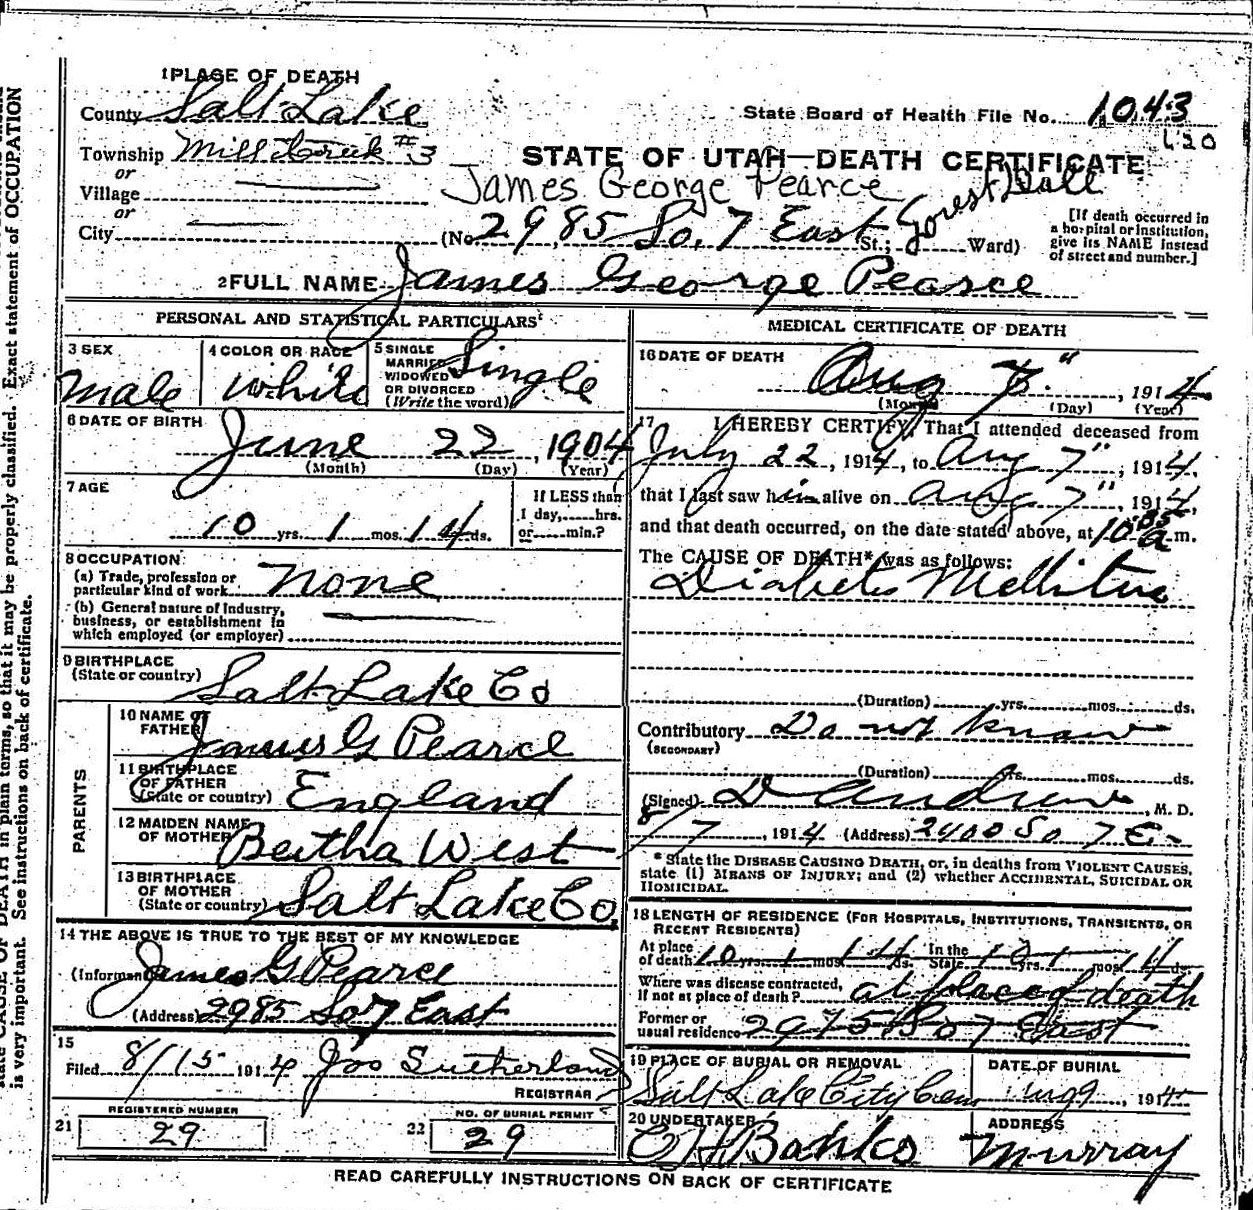 1 PLACE OF DEATH
County Salt Lake
State Board of Health File No. 1043
Township Mill Creek #3
620
STATE OF UTAH—DEATH CERTIFICATE
or
Village
James George Pearce Forest Dale
or
City (No. 2985 So. 7 East St.; Ward)
[If death occurred in a hospital or institution, give its NAME instead of street and number.]
2 FULL NAME James George Pearce
PERSONAL AND STATISTICAL PARTICULARS
3 SEX
Male
4 COLOR OR RACE
White
5 SINGLE MARRIED WIDOWED OR DIVORCED (Write the word)
Single
6 DATE OF BIRTH
June 22, 1904
(Month) (Day) (Year)
7 AGE
10 yrs. 1 mos. 14 ds.
If LESS than 1 day, hrs. or min.?
8 OCCUPATION
(a) Trade, profession or particular kind of work None
(b) General nature of Industry, business, or establishment in which employed (or employer)
9 BIRTHPLACE
(State or country) Salt Lake Co
PARENTS
10 NAME OF FATHER James G Pearce
11 BIRTHPLACE OF FATHER (State or country) England
12 MAIDEN NAME OF MOTHER Bertha West
13 BIRTHPLACE OF MOTHER (State or country) Salt Lake Co.
14 THE ABOVE IS TRUE TO THE BEST OF MY KNOWLEDGE
(Informant) James G Pearce
(Address) 2985 So 7 East
15
Filed 8/15 1914 Jos Sutherland
REGISTRAR
21 REGISTERED NUMBER
29
22 NO. OF BURIAL PERMIT
29
MEDICAL CERTIFICATE OF DEATH
16 DATE OF DEATH
Aug 7", 1914
(Month) (Day) (Year)
17 I HEREBY CERTIFY, That I attended deceased from
July 22, 1914, to Aug 7", 1914,
that I last saw him alive on Aug 7", 1914,
and that death occurred, on the date stated above, at 10:05 a m.
The CAUSE OF DEATH* was as follows:
Diabetes Mellitus
(Duration) yrs. mos. ds.
Contributory Do not know
(SECONDARY)
(Duration) yrs. mos. ds.
(Signed) D Andrew, M. D.
8/7, 1914 (Address) 2400 So 7 E.
* State the DISEASE CAUSING DEATH, or, in deaths from VIOLENT CAUSES,
state (1) MEANS OF INJURY; and (2) whether ACCIDENTAL, SUICIDAL OR
HOMICIDAL.
18 LENGTH OF RESIDENCE (FOR HOSPITALS, INSTITUTIONS, TRANSIENTS, OR
RECENT RESIDENTS)
At place of death 10 yrs. 1 mos. 14 ds. In the State 10 yrs. 1 mos. 14 ds.
Where was disease contracted, If not at place of death? at place of death
Former or usual residence 2975 So 7 East
19 PLACE OF BURIAL OR REMOVAL
Salt Lake City Cem
DATE OF BURIAL
Aug 9, 1914
20 UNDERTAKER
ADDRESS
Murray
READ CAREFULLY INSTRUCTIONS ON BACK OF CERTIFICATE
state CAUSE OF DEATH in plain terms, so that it may be properly classified. Exact statement of OCCUPATION
is very important. See instructions on back of certificate.